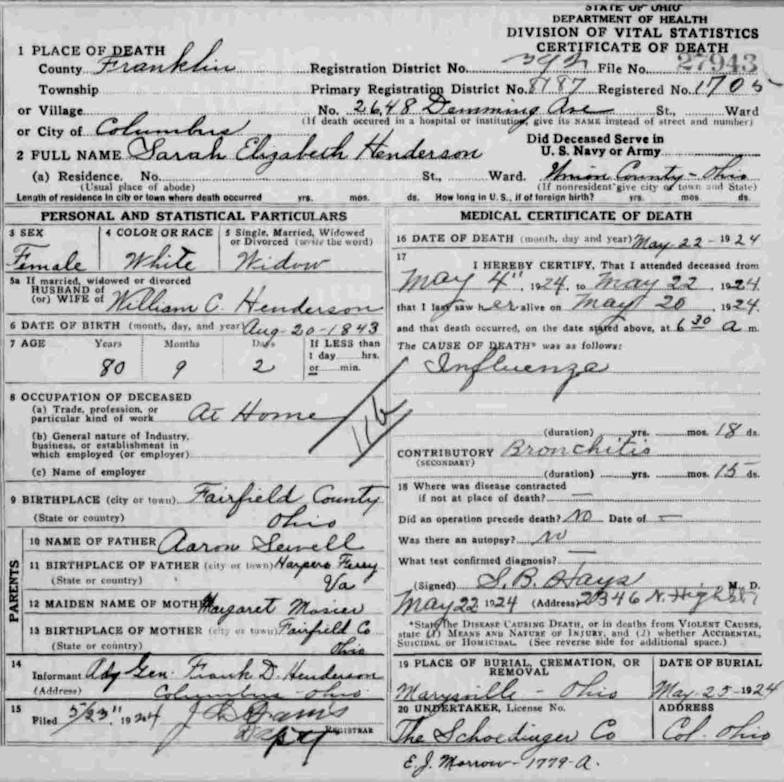 STATE OF OHIO
DEPARTMENT OF HEALTH
DIVISION OF VITAL STATISTICS
CERTIFICATE OF DEATH
1 PLACE OF DEATH
County Franklin Registration District No. 392 File No. 27943
Township Primary Registration District No. 8187 Registered No. 1705
or Village No. 2648 Demming Ave St., Ward
(If death occured in a hospital or institution, give its NAME instead of street and number)
or City of Columbus
Did Deceased Serve in
U. S. Navy or Army
2 FULL NAME Sarah Elizabeth Henderson
(a) Residence. No. St., Ward. Union County - Ohio
(Usual place of abode) (If nonresident give city or town and State)
Length of residence in city or town where death occurred yrs. mos. ds. How long in U. S., if of foreign birth? yrs. mos. ds.
PERSONAL AND STATISTICAL PARTICULARS
3 SEX 4 COLOR OR RACE 5 Single, Married, Widowed or Divorced (write the word)
Female White Widow
5a If married, widowed or divorced
HUSBAND of
(or) WIFE of William C. Henderson
6 DATE OF BIRTH (month, day, and year) Aug-20-1843
7 AGE Years Months Days If LESS than
1 day hrs.
or min.
80 9 2
8 OCCUPATION OF DECEASED
(a) Trade, profession, or
particular kind of work At Home
(b) General nature of Industry,
business, or establishment in
which employed (or employer)
(c) Name of employer
11b
9 BIRTHPLACE (city or town) Fairfield County
(State or country) Ohio
PARENTS
10 NAME OF FATHER Aaron Sewell
11 BIRTHPLACE OF FATHER (city or town) Harpers Ferry
(State or country) Va
12 MAIDEN NAME OF MOTHER Margaret Mosier
13 BIRTHPLACE OF MOTHER (city or town) Fairfield Co
(State or country) Ohio
14
Informant Adj Gen. Frank D. Henderson
(Address) Columbus - Ohio
15
Filed 5/23" 1924
REGISTRAR
MEDICAL CERTIFICATE OF DEATH
16 DATE OF DEATH (month, day and year) May-22-1924
17
I HEREBY CERTIFY, That I attended deceased from
May 4", 1924, to May 22, 1924
that I last saw her alive on May 20, 1924.
and that death occurred, on the date stated above, at 6 30 A m.
The CAUSE OF DEATH* was as follows:
Influenza
(duration) yrs. mos. 18 ds.
CONTRIBUTORY Bronchitis
(SECONDARY)
(duration) yrs. mos. 15 ds.
18 Where was disease contracted
if not at place of death? —
Did an operation precede death? No Date of —
Was there an autopsy? No
What test confirmed diagnosis? —
(Signed) S. B. Hays M. D.
May 22 1924 (Address) 2346 N. High St
*State the DISEASE CAUSING DEATH, or in deaths from VIOLENT CAUSES,
state (1) MEANS AND NATURE OF INJURY, and (2) whether ACCIDENTAL,
SUICIDAL or HOMICIDAL. (See reverse side for additional space.)
19 PLACE OF BURIAL, CREMATION, OR REMOVAL DATE OF BURIAL
Marysville - Ohio May-25-1924
20 UNDERTAKER, License No. ADDRESS
The Schoedinger Co Col. Ohio
E. J. Morrow - 1779-A.